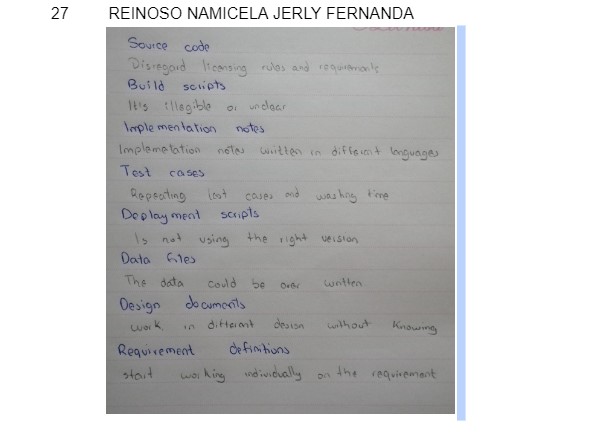 27 REINOSO NAMICELA JERLY FERNANDA
Source code
Disregard licensing rules and requirements
Build scripts
It's illegible or unclear
Implementation notes
Implemetation notes written in different languages
Test cases
Repeating test cases and wasting time
Deployment scripts
Is not using the right version
Data files
The data could be over written
Design documents
work in different design without knowing
Requirement definitions
start working individually on the requirement